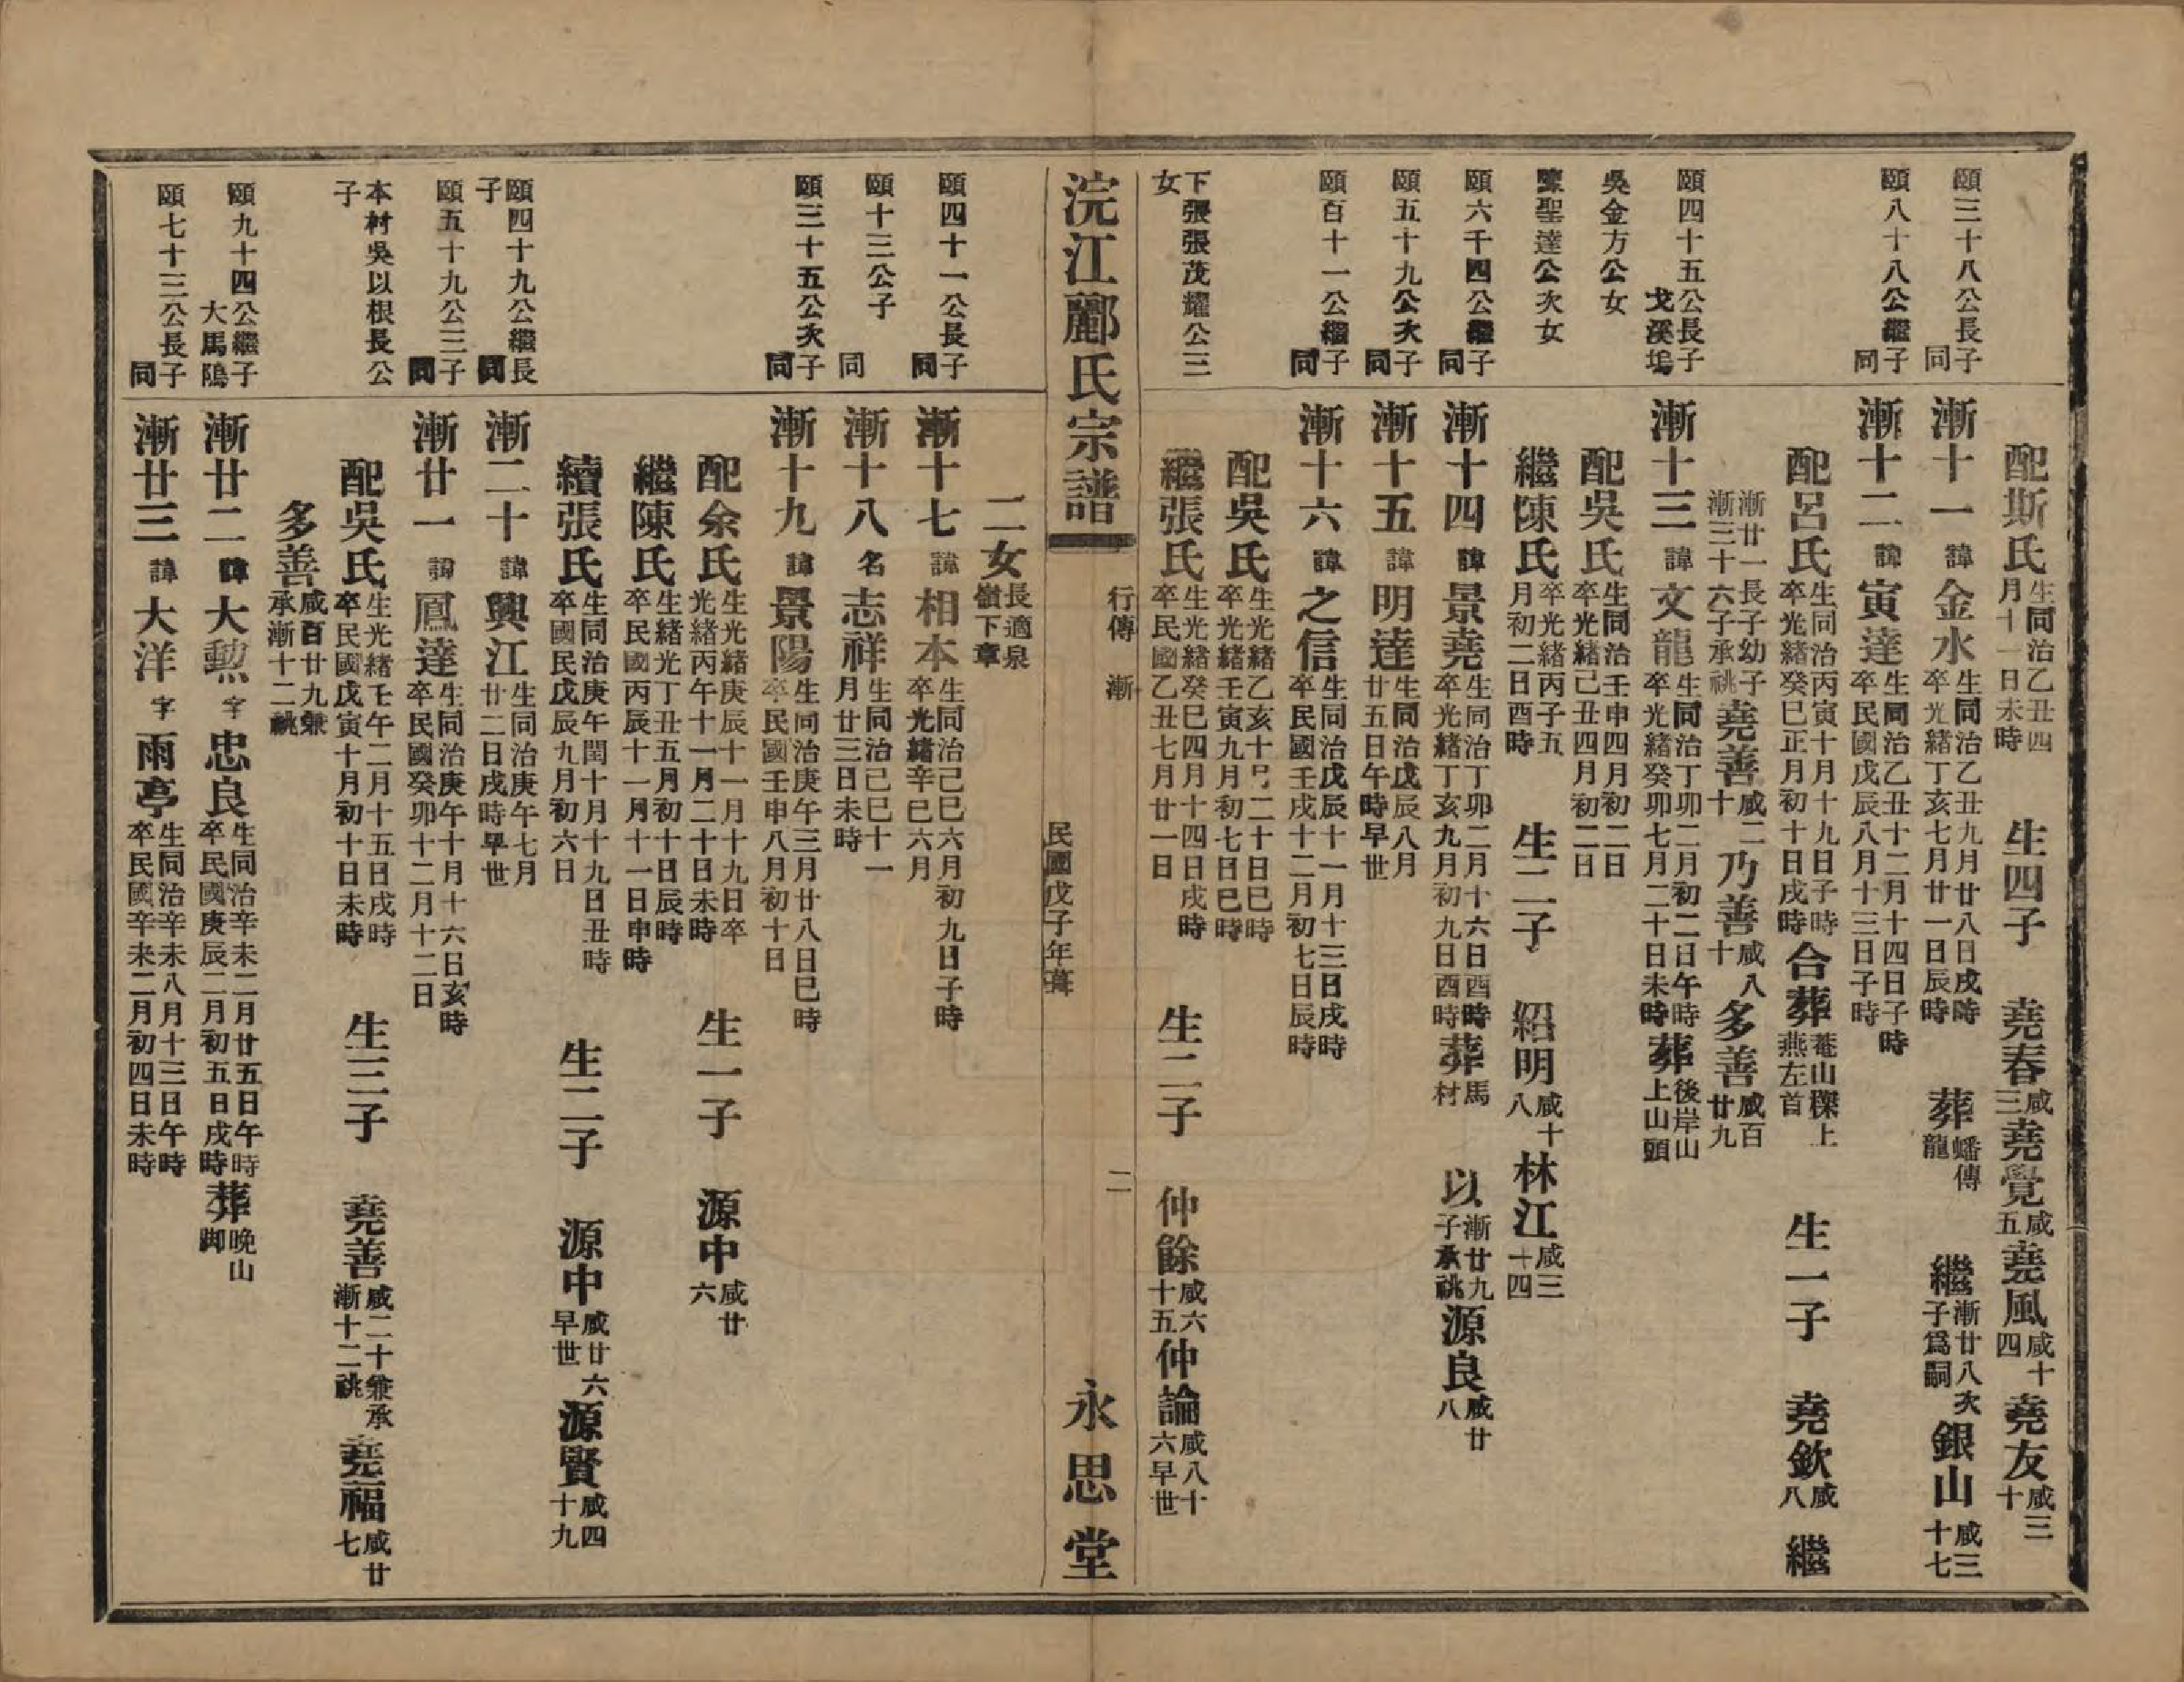 配斯氏 生同治乙丑四月十一日未時 生四子 堯春咸三 堯覺咸五 堯風咸十四 堯友咸三十
頤三十八公長子 同 漸十一 諱 金水 生同治乙丑九月廿八日戌時卒光緒丁亥七月廿一日辰時 葬蟠傳龍 繼漸廿八次子爲嗣 銀山咸三十七
頤八十八公繼子 同 漸十二 諱 寅達 生同治乙丑十二月十四日子時卒民國戊辰八月十三日子時
配呂氏 生同治丙寅十月十九日子時卒光緒癸巳正月初十日戌時 合葬菴山櫟上燕左首 生一子 堯欽咸八 繼
漸廿一長子幼子漸三十六子承祧 堯善咸二十 乃善咸八十 多善咸百廿九
頤四十五公長子 戈溪塢 漸十三 諱 文龍 生同治丁卯二月初二日午時卒光緒癸卯七月二十日未時 葬後岸山上山頭
吳金方公女 配吳氏 生同治壬申四月初二日卒光緒己丑四月初二日
陳聖達公次女 繼陳氏 卒光緒丙子五月初二日酉時 生二子 紹明咸十八 林江咸三十四
頤六千四公繼子 同 漸十四 諱 景堯 生同治丁卯二月十六日酉時卒光緒丁亥九月初九日酉時 葬馬村 以漸廿九子承祧 源良咸廿八
頤五十九公次子 同 漸十五 諱 明達 生同治戊辰八月廿五日午時早世
頤百十一公繼子 同 漸十六 諱 之信 生同治戊辰十一月十三日戌時卒民國壬戌十二月初七日辰時
配吳氏 生光緒乙亥十月二十日巳時卒光緒壬寅九月初七日巳時
下張張茂耀公三女 繼張氏 生光緒癸巳四月十四日戌時卒民國乙丑七月廿一日 生二子 仲餘咸六十五 仲論咸八十六早世
浣江酈氏宗譜 行傳 漸 民國戊子年葺 二 永思堂
二女 長適泉嶺下章
頤四十一公長子 同 漸十七 諱 相本 生同治己巳六月初九日子時卒光緒辛巳六月
頤十三公子 同 漸十八 名 志祥 生同治己巳十一月廿三日未時
頤三十五公次子 同 漸十九 諱 景陽 生同治庚午三月廿八日巳時卒民國壬申八月初十日
配余氏 生光緒庚辰十一月十九日卒光緒丙午十一月二十日未時 生一子 源中咸廿六
繼陳氏 生緒光丁丑五月初十日辰時卒民國丙辰十一月十一日申時
續張氏 生同治庚午閏十月十九日丑時卒國民戊辰九月初六日 生二子 源中咸廿六早世 源賢咸四十九
頤四十九公繼長子 同 漸二十 諱 興江 生同治庚午七月廿二日戌時早世
頤五十九公三子 同 漸廿一 諱 鳳達 生同治庚午十月十六日亥時卒民國癸卯十二月十二日
本村吳以根長公子 配吳氏 生光緒壬午二月十五日戌時卒民國戊寅十月初十日未時 生三子 堯善咸二十兼承漸十二祧 堯福咸廿七
多善咸百廿九兼承漸十二祧
頤九十四公繼子 大馬隝 漸廿二 諱 大勲 字 忠良 生同治辛未二月廿五日午時卒民國庚辰二月初五日戌時 葬晚山脚
頤七十三公長子 同 漸廿三 諱 大洋 字 雨亭 生同治辛未八月十三日午時卒民國辛未二月初四日未時